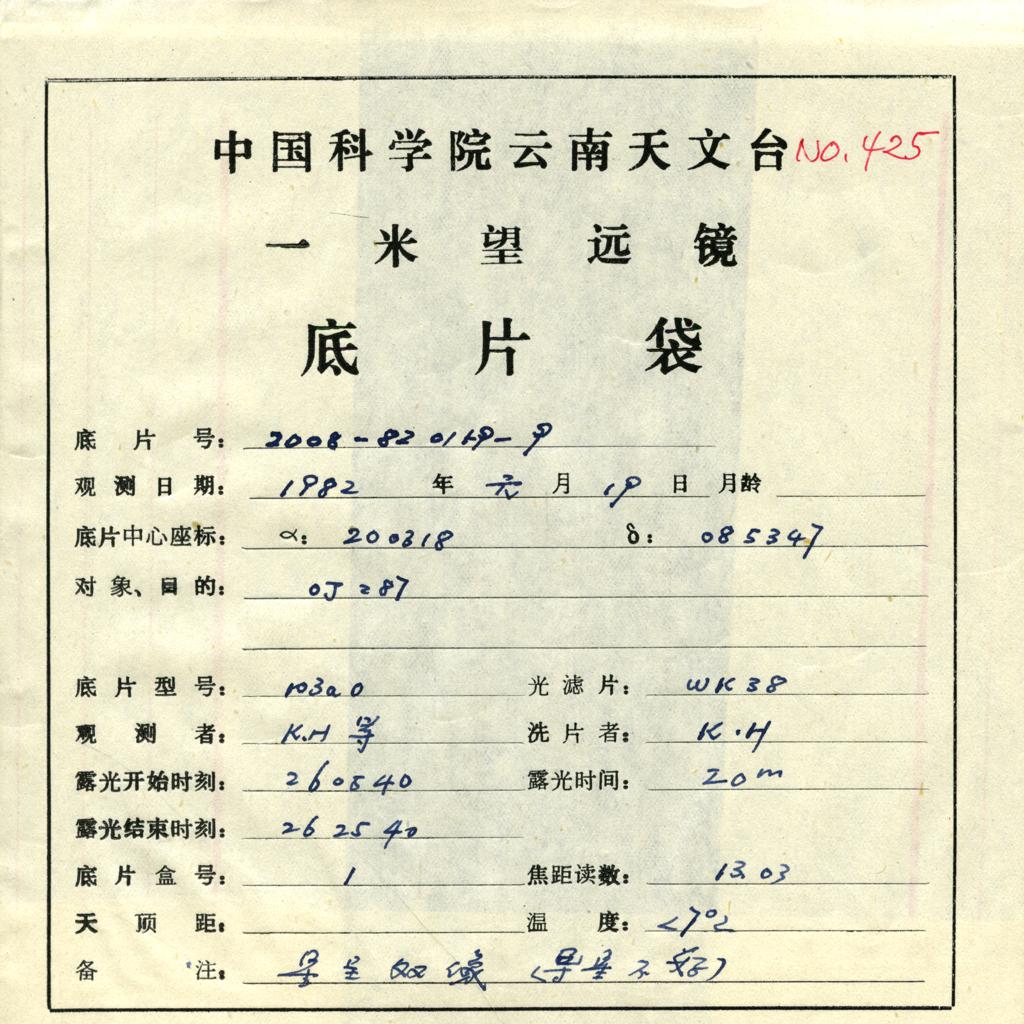 中国科学院云南天文台 NO.425
一米望远镜
底片袋
底片号： 2008-820119-甲
观测日期： 1982 年 元 月 19 日 月龄
底片中心座标： α： 200318 δ： 085347
对象、目的： OJ 287
底片型号： 103a0 光滤片： WK38
观测者： K.H 等 洗片者： K.H
露光开始时刻： 260540 露光时间： 20m
露光结束时刻： 262540
底片盒号： 1 焦距读数： 13.03
天顶距： 温度： <7℃
备注： 星呈双像（导星不好）